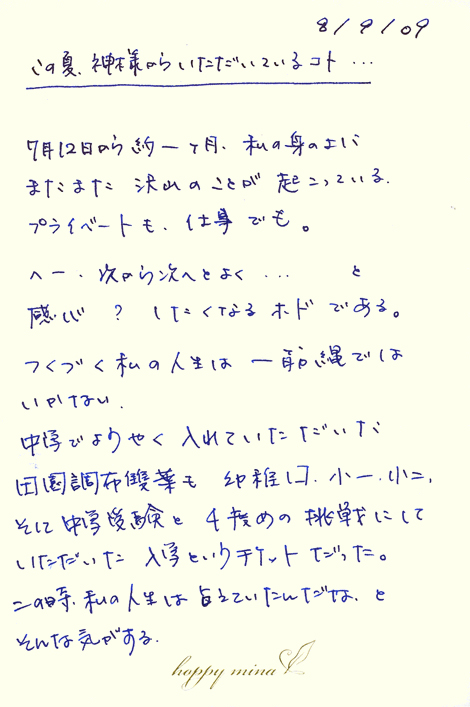 8/9/09
この夏、神様からいただいているコト…
7月12日から約一ヶ月、私の身の上に
またまた 沢山のことが 起こっている。
プライベートも、仕事でも。
へー、次から次へとよく… と
感心？したくなるホドである。
つくづく私の人生は 一筋縄では
いかない。
中学でようやく 入れていただいた
田園調布雙葉も 幼稚園、小一、小二、
そして中学受験と 4度めの挑戦にして
いただいた 入学というチケットだった。
この時、私の人生は 見えていたんだな、と
そんな気がする。
happy mina